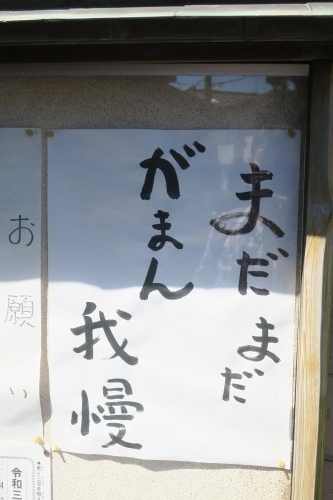 まだまだ
がまん
我慢
お願い
令和三